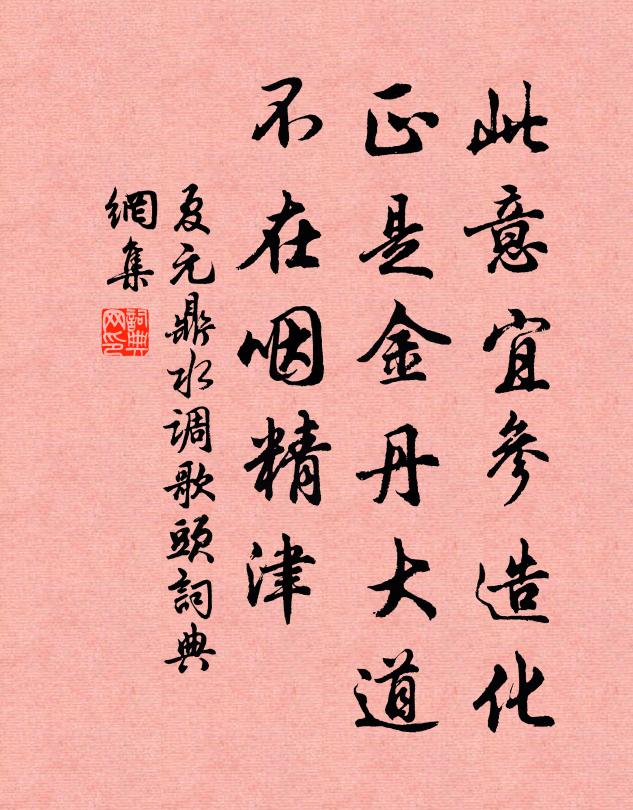 此意宜參造化
正是金丹大道
不在咽精津
夏元鼎水调歌頭詞典
網集
詞典
网印